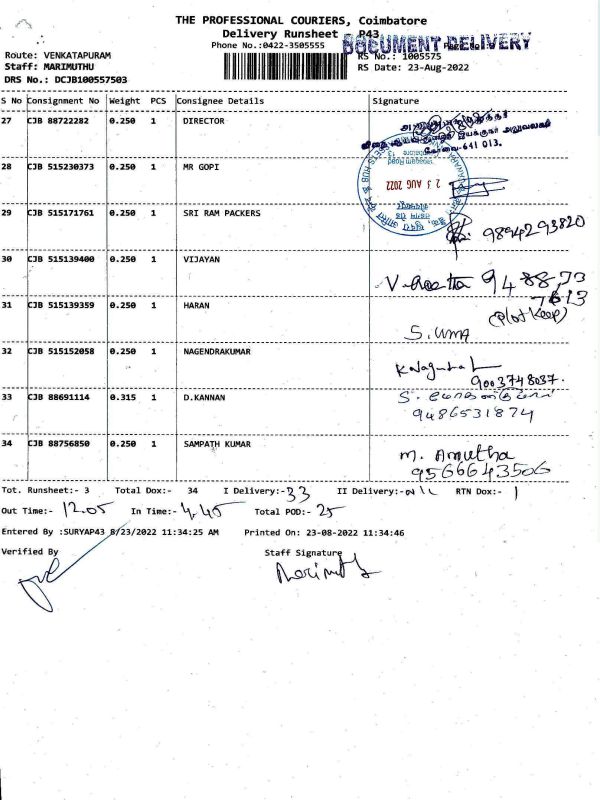 THE PROFESSIONAL COURIERS, Coimbatore
Delivery Runsheet P43
Phone No.:0422-3505555
DOCUMENT DELIVERY
Route: VENKATAPURAM
RS No.: 1005575
Staff: MARIMUTHU
RS Date: 23-Aug-2022
DRS No.: DCJB100557503
S No Consignment No Weight PCS Consignee Details Signature
27 CJB 88722282 0.250 1 DIRECTOR
641 013.
28 CJB 515230373 0.250 1 MR GOPI
23 AUG 2022
29 CJB 515171761 0.250 1 SRI RAM PACKERS
9894293820
30 CJB 515139400 0.250 1 VIJAYAN
94 88,73
7613
31 CJB 515139359 0.250 1 HARAN
S. UMA
32 CJB 515152058 0.250 1 NAGENDRAKUMAR
9003748037.
33 CJB 88691114 0.315 1 D.KANNAN
9486531874
34 CJB 88756850 0.250 1 SAMPATH KUMAR
M. Amutha
9566643506
Tot. Runsheet:- 3 Total Dox:- 34 I Delivery:-33 II Delivery:- RTN Dox:- 1
Out Time:- 12.05 In Time:- 4.45 Total POD:- 25
Entered By :SURYAP43 8/23/2022 11:34:25 AM Printed On: 23-08-2022 11:34:46
Verified By Staff Signature